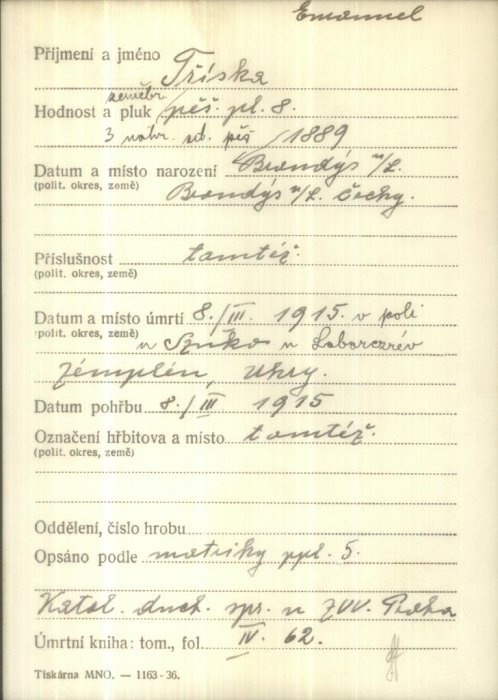 Emanuel
Příjmení a jméno Tříska
zeměbr.
Hodnost a pluk pěš. pl. 8.
3 náhr. set. pěš /1889
Datum a místo narození Brandýs n/L.
(polit. okres, země) Brandýs n/L. Čechy.
Příslušnost tamtéž.
(polit. okres, země)
Datum a místo úmrtí 8./III. 1915. v poli
(polit. okres, země) u Szuko u Laborczrév
Zémplén, Uhry.
Datum pohřbu 8./III 1915
Označení hřbitova a místo tamtéž.
(polit. okres, země)
Oddělení, číslo hrobu
Opsáno podle matriky ppl. 5.
Katol. duch. spr. u ZVV. Praha
Úmrtní kniha: tom., fol. IV. 62.
Tiskárna MNO. — 1163-36.